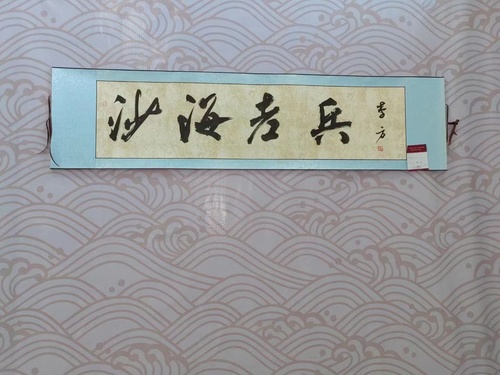 沙海老兵
李方